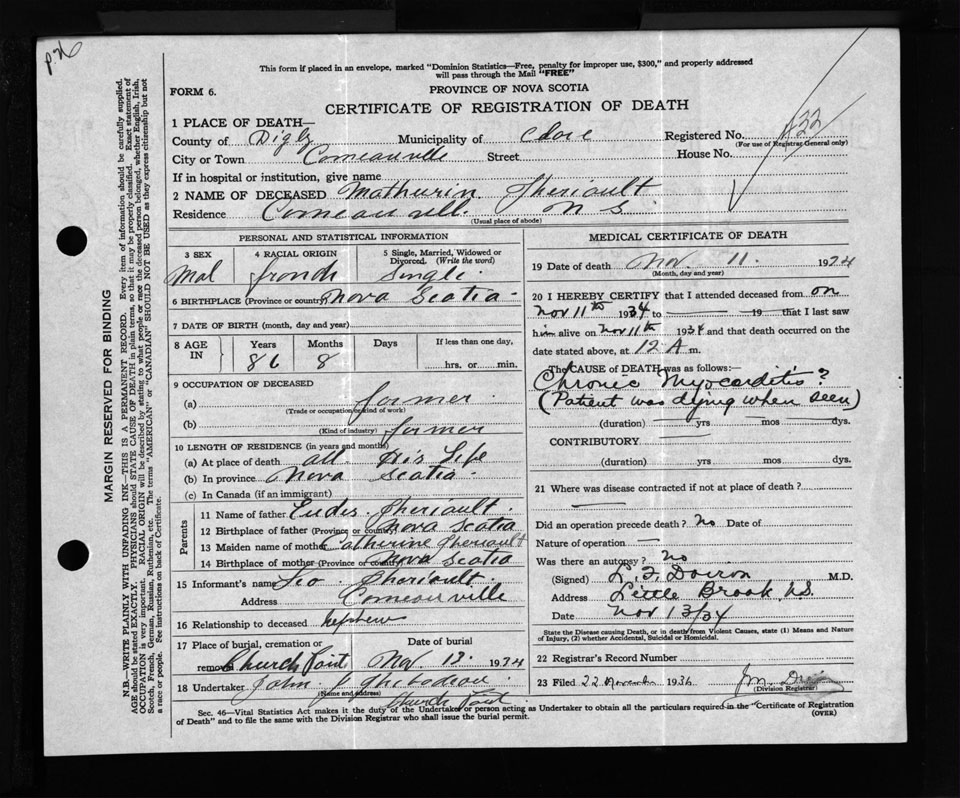 p26
This form if placed in an envelope, marked "Dominion Statistics—Free, penalty for improper use, $300," and properly addressed
will pass through the Mail "FREE"
FORM 6.
PROVINCE OF NOVA SCOTIA
CERTIFICATE OF REGISTRATION OF DEATH
1 PLACE OF DEATH—
County of Digby Municipality of Clare Registered No. 
(For use of Registrar General only)
City or Town Comeauville Street House No.
If in hospital or institution, give name
2 NAME OF DECEASED Mathurin Theriault
Residence Comeauville N S.
(Usual place of abode)
PERSONAL AND STATISTICAL INFORMATION
3 SEX 4 RACIAL ORIGIN 5 Single, Married, Widowed or
Divorced. (Write the word)
Mal french Single
6 BIRTHPLACE (Province or country) Nova Scotia
7 DATE OF BIRTH (month, day and year)
8 AGE IN Years Months Days If less than one day,
86 8 hrs. or min.
9 OCCUPATION OF DECEASED
(a) farmer
(Trade or occupation or kind of work)
(b) farmer
(Kind of industry)
10 LENGTH OF RESIDENCE (in years and months)
(a) At place of death all His Life
(b) In province Nova Scotia
(c) In Canada (if an immigrant)
Parents
11 Name of father Eudes Theriault
12 Birthplace of father (Province or country) Nova Scotia
13 Maiden name of mother Catherine Theriault
14 Birthplace of mother (Province or country) Nova Scotia
15 Informant's name Leo Theriault
Address Comeauville
16 Relationship to deceased nephew
17 Place of burial, cremation or Date of burial
removal Church Point Nov. 13. 1934
18 Undertaker John J Thibodeau
(Name and address)
Church Point
MEDICAL CERTIFICATE OF DEATH
19 Date of death Nov. 11. 1934
(Month, day and year)
20 I HEREBY CERTIFY that I attended deceased from on
Nov 11th 1934 to — 19— that I last saw
him alive on Nov 11th 1934 and that death occurred on the
date stated above, at 12 A m.
The CAUSE OF DEATH was as follows:—
Chronic Myocarditis?
(Patient was dying when seen)
(duration) yrs mos dys.
CONTRIBUTORY
(duration) yrs mos dys.
21 Where was disease contracted if not at place of death?
Did an operation precede death? No Date of
Nature of operation —
Was there an autopsy? No
(Signed) L. F. Doiron M.D.
Address Little Brook, N.S.
Date Nov 13/34
State the Disease causing Death, or in death from Violent Causes, state (1) Means and Nature
of Injury, (2) whether Accidental, Suicidal or Homicidal.
22 Registrar's Record Number
23 Filed 22 November 1934
(Division Registrar)
Sec. 46—Vital Statistics Act makes it the duty of the Undertaker or person acting as Undertaker to obtain all the particulars required in the "Certificate of Registration
of Death" and to file the same with the Division Registrar who shall issue the burial permit.
(OVER)
MARGIN RESERVED FOR BINDING
N.B.—WRITE PLAINLY WITH UNFADING INK—THIS IS A PERMANENT RECORD. Every item of information should be carefully supplied.
AGE should be stated EXACTLY. PHYSICIANS should STATE CAUSE OF DEATH in plain terms, so that it may be properly classified. Exact statement of
OCCUPATION is very important. RACIAL ORIGIN will be described by stating to what people or race the deceased person belonged, whether English, Irish,
Scotch, French, German, Russian, Ruthenian, etc. The terms "AMERICAN" or "CANADIAN" SHOULD NOT BE USED as they express citizenship but not
a race or people. See instructions on back of Certificate.